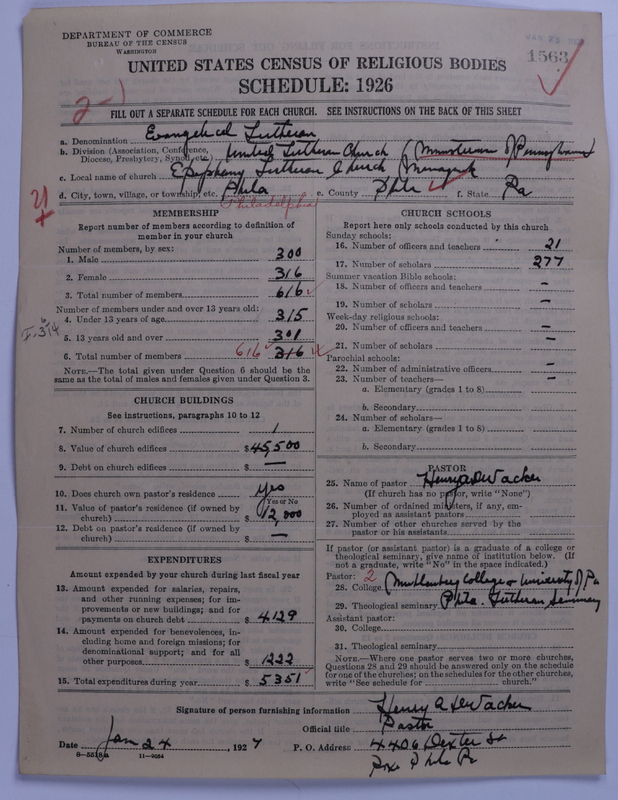 DEPARTMENT OF COMMERCE
BUREAU OF THE CENSUS
WASHINGTON
1563
UNITED STATES CENSUS OF RELIGIOUS BODIES
SCHEDULE: 1926
2-1
FILL OUT A SEPARATE SCHEDULE FOR EACH CHURCH. SEE INSTRUCTIONS ON THE BACK OF THIS SHEET
a. Denomination Evangelical Lutheran
b. Division (Association, Conference, Diocese, Presbytery, Synod, etc.) United Lutheran Church (Ministerium of Pennsylvania)
c. Local name of church Epiphany Lutheran Church Manayunk
d. City, town, village, or township, etc. Phila e. County Phila f. State Pa
Philadelphia
MEMBERSHIP
Report number of members according to definition of
member in your church
Number of members, by sex:
1. Male 300
2. Female 316
3. Total number of members 616
Number of members under and over 13 years old:
4. Under 13 years of age 315
5. 13 years old and over 301
6. Total number of members 616 316
NOTE.—The total given under Question 6 should be the
same as the total of males and females given under Question 3.
CHURCH BUILDINGS
See instructions, paragraphs 10 to 12
7. Number of church edifices 1
8. Value of church edifices $ 45,500
9. Debt on church edifices $ —
10. Does church own pastor's residence yes
Yes or No
11. Value of pastor's residence (if owned by
church) $ 12,000
12. Debt on pastor's residence (if owned by
church) $ —
EXPENDITURES
Amount expended by your church during last fiscal year
13. Amount expended for salaries, repairs,
and other running expenses; for im-
provements or new buildings; and for
payments on church debt $ 4129
14. Amount expended for benevolences, in-
cluding home and foreign missions; for
denominational support; and for all
other purposes $ 1222
15. Total expenditures during year $ 5351
CHURCH SCHOOLS
Report here only schools conducted by this church
Sunday schools:
16. Number of officers and teachers 21
17. Number of scholars 277
Summer vacation Bible schools:
18. Number of officers and teachers —
19. Number of scholars —
Week-day religious schools:
20. Number of officers and teachers —
21. Number of scholars —
Parochial schools:
22. Number of administrative officers —
23. Number of teachers—
a. Elementary (grades 1 to 8)
b. Secondary
24. Number of scholars—
a. Elementary (grades 1 to 8)
b. Secondary
PASTOR
25. Name of pastor Henry A DeWacker
(If church has no pastor, write "None")
26. Number of ordained ministers, if any, em-
ployed as assistant pastors
27. Number of other churches served by the
pastor or his assistants
If pastor (or assistant pastor) is a graduate of a college or
theological seminary, give name of institution below. (If
not a graduate, write "No" in the space indicated.)
Pastor: 2
28. College Muhlenberg College & University of Pa
29. Theological seminary Phila. Lutheran Seminary
Assistant pastor:
30. College
31. Theological seminary
NOTE.—Where one pastor serves two or more churches,
Questions 28 and 29 should be answered only on the schedule
for one of the churches; on the schedules for the other churches,
write "See schedule for church."
Signature of person furnishing information Henry A DeWacker
Official title Pastor
Date Jan 24, 1927 P. O. Address 4406 Dexter St
Rox Phila Pa
8—5518a 11—9684